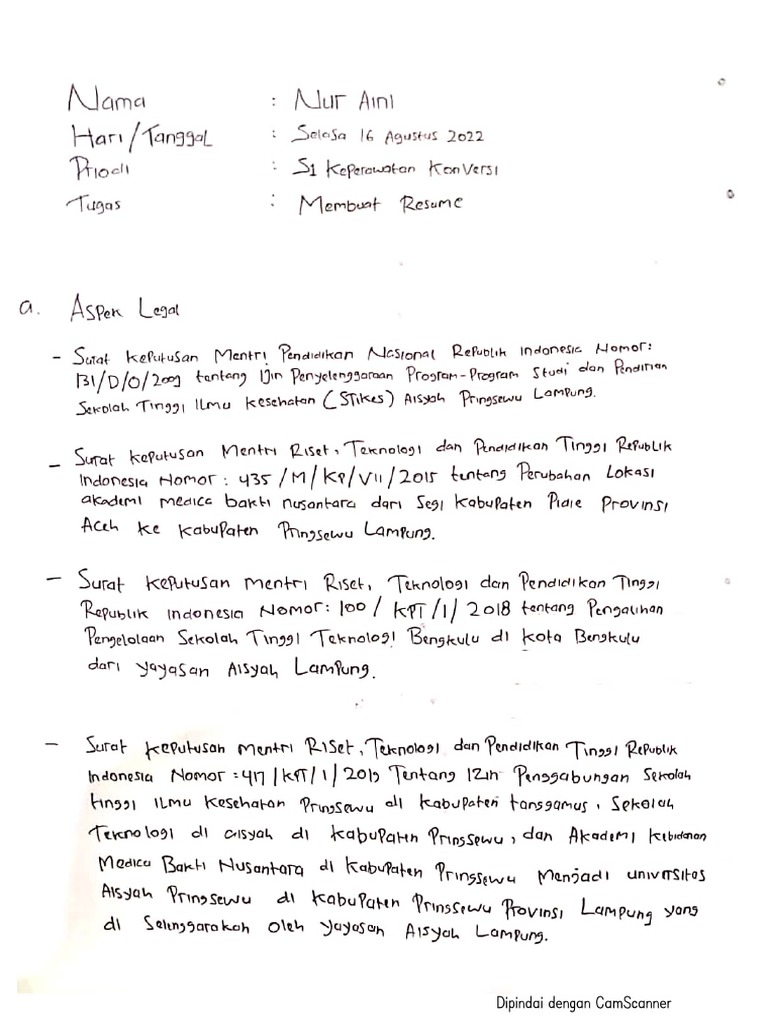 Nama : Nur Aini
Hari/Tanggal : Selasa 16 Agustus 2022
Priodi : S1 Keperawatan Konversi
Tugas : Membuat Resume
a. Aspek Legal
- Surat Keputusan Mentri Pendidikan Nasional Republik Indonesia Nomor:
131/D/O/2009 tentang Ijin Penyelenggaraan Program-Program Studi dan Pendirian
Sekolah Tinggi Ilmu Kesehatan (STikes) Aisyah Pringsewu Lampung.
- Surat Keputusan Mentri Riset, Teknologi dan Pendidikan Tinggi Republik
Indonesia Nomor : 435/M/KP/VII/2015 tentang Perubahan Lokasi
akademi medica bakti nusantara dari Segi Kabupaten Pidie Provinsi
Aceh ke Kabupaten Pringsewu Lampung.
- Surat Keputusan Mentri Riset, Teknologi dan Pendidikan Tinggi
Republik Indonesia Nomor: 100/KPT/1/2018 tentang Pengalihan
Pengelolaan Sekolah Tinggi Teknologi Bengkulu di kota Bengkulu
dari yayasan Aisyah Lampung.
- Surat Keputusan Mentri Riset, Teknologi dan Pendidikan Tinggi Republik
Indonesia Nomor : 417/KPT/1/2019 Tentang Izin Penggabungan Sekolah
tinggi Ilmu Kesehatan Pringsewu di Kabupaten tanggamus, Sekolah
Teknologi di aisyah di Kabupaten Pringsewu, dan Akademi Kebidanan
Medica Bakti Nusantara di Kabupaten Pringsewu Menjadi universitas
Aisyah Pringsewu di Kabupaten Pringsewu Provinsi Lampung yang
di Selenggarakan oleh yayasan Aisyah Lampung.
Dipindai dengan CamScanner